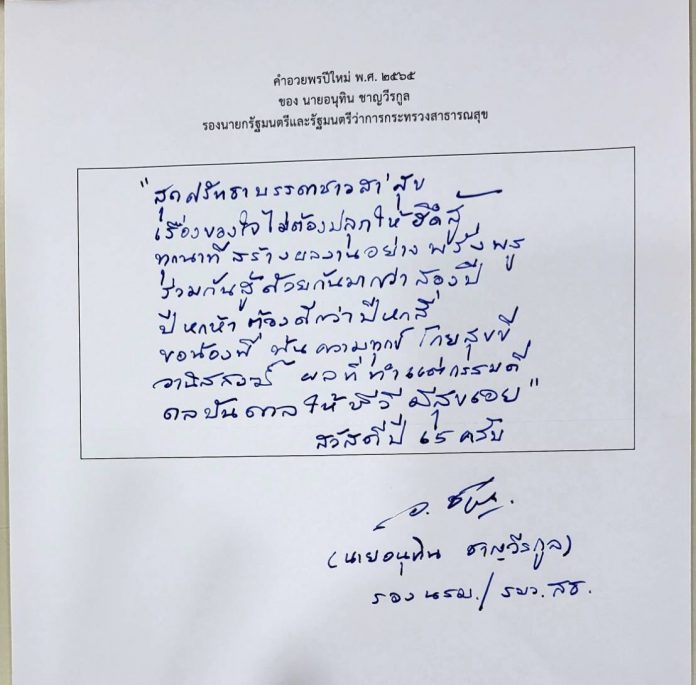 คำอวยพรปีใหม่ พ.ศ. ๒๕๖๕
ของ นายอนุทิน ชาญวีรกูล
รองนายกรัฐมนตรีและรัฐมนตรีว่าการกระทรวงสาธารณสุข
"สุดศรัทธาบรรดาชาวสา'สุข
เรื่องของใจไม่ต้องปลุกให้ฮึดสู้
ทุกนาทีสร้างผลงานอย่างพรั่งพรู
ร่วมกันสู้ด้วยกันมากว่าสองปี
ปีหกห้า ต้องดีกว่าปีหกสี่
ขอน้องพี่ พ้นความทุกข์ โกยสุขขี
อานิสงส์ ผลที่ทำแต่กรรมดี
ดลบันดาลให้ชีวี มีสุขเอย"
สวัสดีปี ๖๕ ครับ
อ.
(นายอนุทิน ชาญวีรกูล)
รอง นรม./ รมว. สธ.